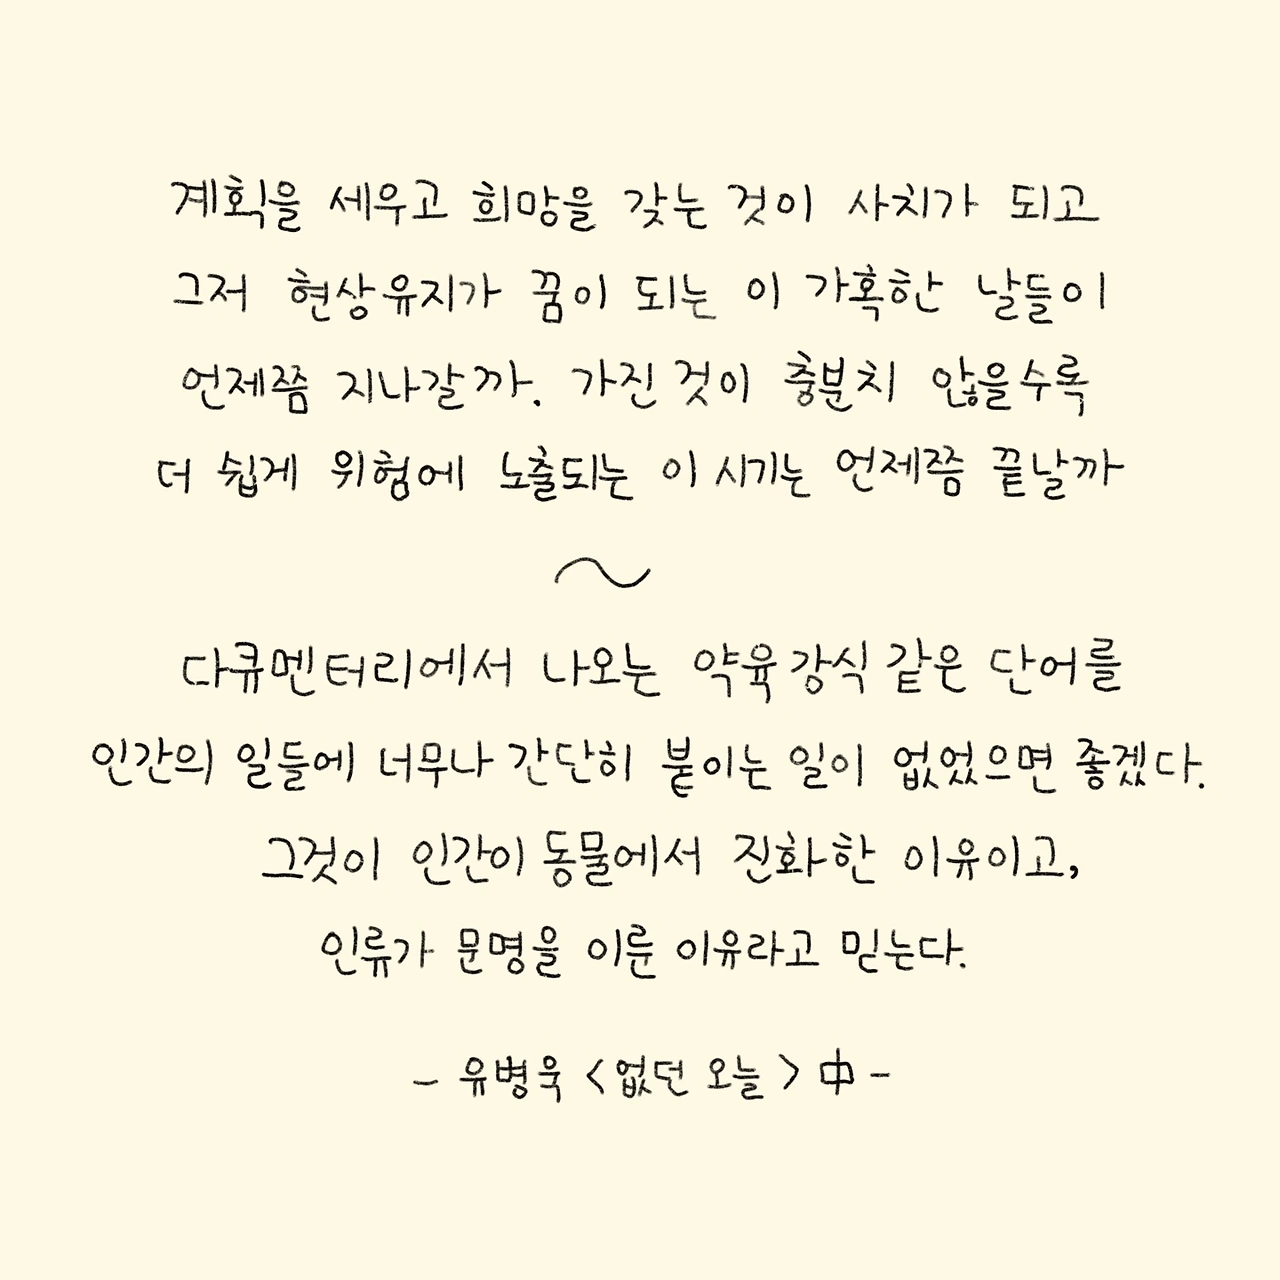 계획을 세우고 희망을 갖는 것이 사치가 되고
그저 현상유지가 꿈이 되는 이 가혹한 날들이
언제쯤 지나갈까. 가진 것이 충분치 않을수록
더 쉽게 위험에 노출되는 이 시기는 언제쯤 끝날까
~
다큐멘터리에서 나오는 약육강식 같은 단어를
인간의 일들에 너무나 간단히 붙이는 일이 없었으면 좋겠다.
그것이 인간이 동물에서 진화한 이유이고,
인류가 문명을 이룬 이유라고 믿는다.
- 유병욱 <없던 오늘> 中 -